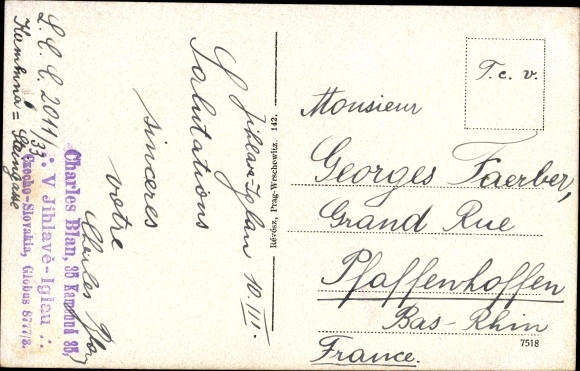 L. C. C. 2011/33
Kamenná = Steingasse
Charles Blan, 35 Kamenná 35,
∴ V Jihlavě-Iglau ∴
Czecho-Slovakia, Globus 8777/3.
Jihlava-Iglau 10.III.
Salutations
sincères
votre
Charles Blan
Révész, Prag-Wrschowitz. 142.
T. c. v.
Monsieur
Georges Faerber,
Grand Rue
Pfaffenhoffen
Bas-Rhin
France.
7518